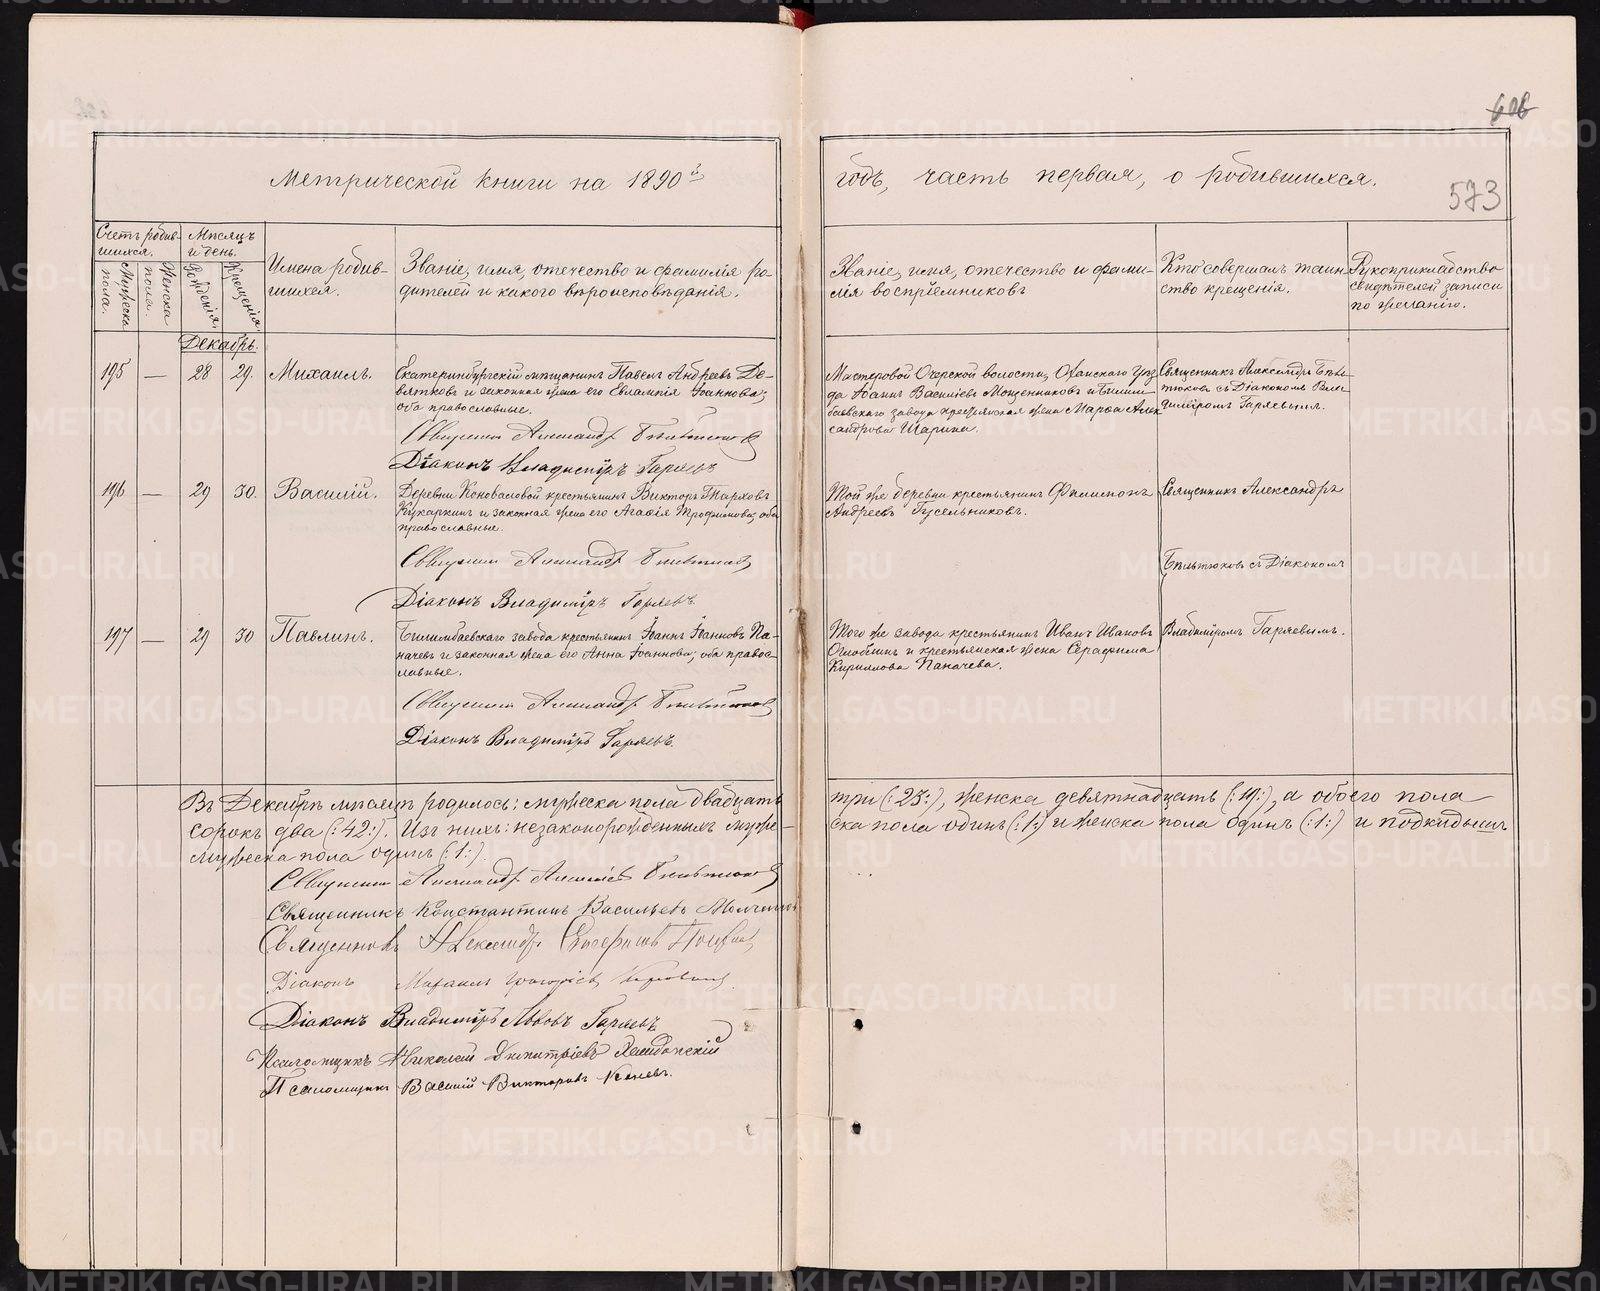 406
573
Метрической книги на 1890й
годъ, часть первая, о родившихся.
Счетъ родив-
шихся.
Мужеска
пола.
Женска
пола.
Мѣсяцъ
и день.
Рожденія.
Крещенія.
Имена родив-
шихся.
Званіе, имя, отечество и фамилія ро-
дителей и какого вѣроисповѣданія.
Званіе, имя, отечество и фами-
лія воспріемниковъ
Кто совершалъ таин
ство крещенія.
Рукоприкладство
свидѣтелей записи
по желанію.
Декабрь.
195 — 28 29. Михаилъ.
Екатеринбургскій мѣщанинъ Павелъ Андреевъ Де-
вятковъ и законная жена его Евлампія Іоаннова,
оба православные.
Священникъ Александръ Бѣльтюковъ
Діаконъ Владиміръ Гаряевъ
Мастеровой Очерской волости, Оханскаго Уѣз
да Іоаннъ Василіевъ Мощенниковъ и Билим-
баевскаго завода крестьянская жена Марѳа Алек
сандрова Шарина.
Священникъ Александръ Бѣль-
тюковъ съ Діакономъ Вла-
диміромъ Гаряевымъ.
196 — 29 30. Василій.
Деревни Коноваловой крестьянинъ Викторъ Тарховъ
Кухаркинъ и законная жена его Агаѳія Трофимова, оба
православные.
Священникъ Александръ Бѣльтюковъ
Діаконъ Владиміръ Гаряевъ.
Той же деревни крестьянинъ Филимонъ
Андреевъ Гусельниковъ.
Священникъ Александръ
Бѣльтюковъ съ Діакономъ
197 — 29 30 Павлинъ.
Билимбаевскаго завода крестьянинъ Іоаннъ Іоанновъ Па-
начевъ и законная жена его Анна Іоаннова; оба правос-
лавные.
Священникъ Александръ Бѣльтюковъ
Діаконъ Владиміръ Гаряевъ.
Того же завода крестьянинъ Иванъ Ивановъ
Оглоблинъ и крестьянская жена Серафима
Кириллова Паначева.
Владиміромъ Гаряевымъ.
Въ Декабрѣ мѣсяцѣ родилось: мужеска пола двадцать
три (:23:), женска девятнадцать (:19:), а обоего пола
сорокъ два (:42:). Изъ нихъ: незаконорожденныхъ муже-
ска пола одинъ (:1:) и женска пола одинъ (:1:) и подкидышъ
мужеска пола одинъ (:1:).
Священникъ Александръ Алексіевъ Бѣльтюковъ
Священникъ Константинъ Васильевъ
Священникъ Александръ Попов
Діаконъ Михаилъ Григоріевъ
Діаконъ Владиміръ Львовъ Гаряевъ
Псаломщикъ Николай Димитріевъ
Псаломщикъ Василій Викторовъ Коневъ.
METRIKI.GASO-URAL.RU